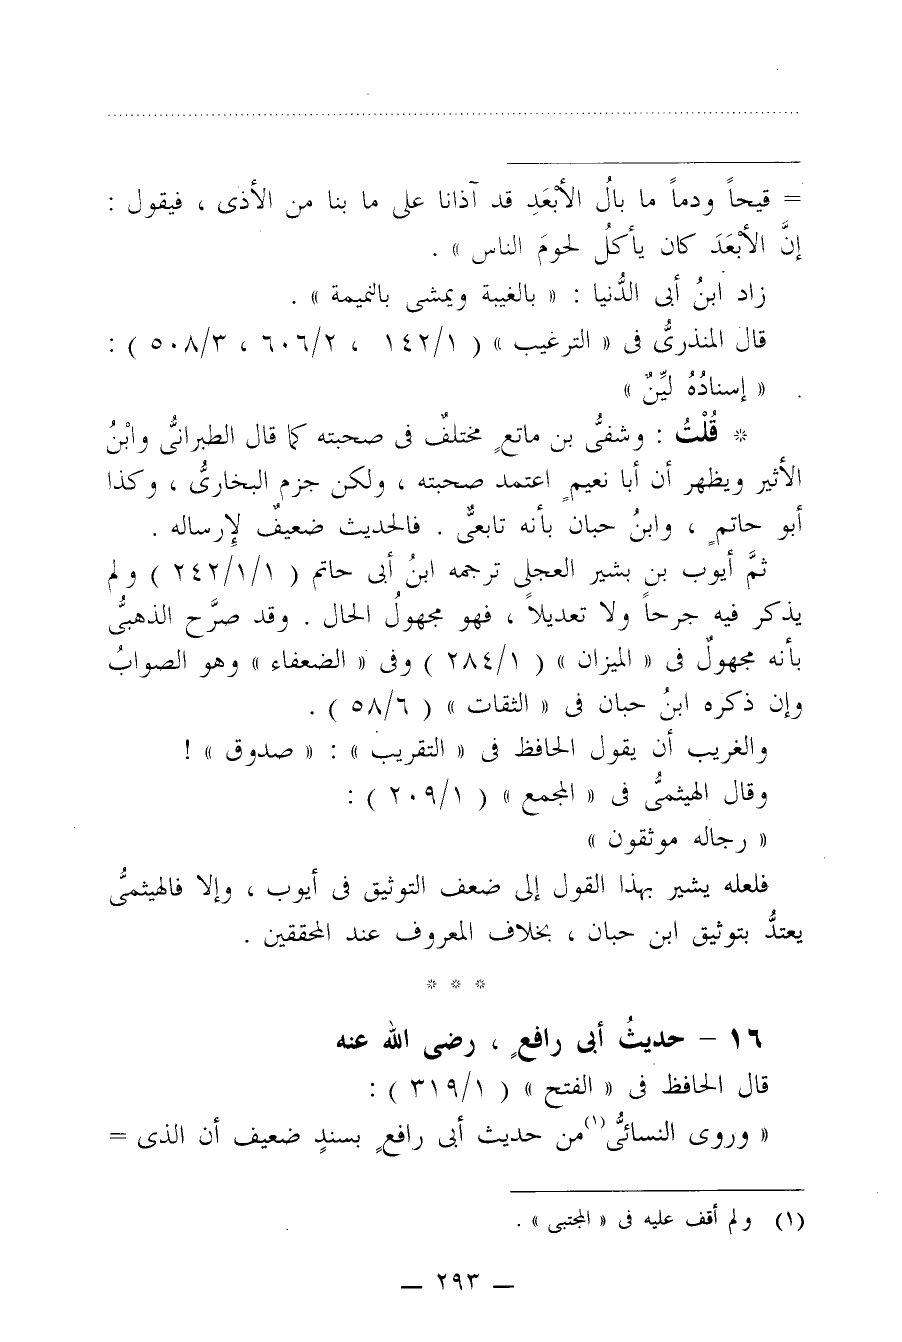 = قيحاً ودماً ما بالُ الأبْعَدِ قد آذانا على ما بنا من الأذى ، فيقول :
إنَّ الأبْعَدَ كان يأكلُ لحومَ الناس » .
زاد ابنُ أبى الدُّنيا : « بالغيبة ويمشى بالنميمة » .
قال المنذرىُّ فى « الترغيب » ( ١٤٢/١ ، ٦٠٦/٢ ، ٥٠٨/٣ ) :
« إسنادُهُ ليِّنٌ » .
* قُلْتُ : وشفىُّ بن ماتعٍ مختلفٌ فى صحبته كما قال الطبرانىُّ وابْنُ
الأثير ويظهر أن أبا نعيمٍ اعتمد صحبته ، ولكن جزم البخارىُّ ، وكذا
أبو حاتمٍ ، وابنُ حبان بأنه تابعىٌّ . فالحديث ضعيفٌ لإرساله .
ثمَّ أيوب بن بشير العجلى ترجمه ابنُ أبى حاتم ( ٢٤٢/١/١ ) ولم
يذكر فيه جرحاً ولا تعديلاً ، فهو مجهولُ الحال . وقد صرَّح الذهبىُّ
بأنه مجهولٌ فى « الميزان » ( ٢٨٤/١ ) وفى « الضعفاء » وهو الصوابُ
وإن ذكره ابنُ حبان فى « الثقات » ( ٥٨/٦ ) .
والغريب أن يقول الحافظ فى « التقريب » : « صدوق » !
وقال الهيثمىُّ فى « المجمع » ( ٢٠٩/١ ) :
« رجاله موثقون »
فلعله يشير بهذا القول إلى ضعف التوثيق فى أيوب ، وإلا فالهيثمىُّ
يعتدُّ بتوثيق ابن حبان ، بخلاف المعروف عند المحققين .
* * *
١٦ - حديثُ أبى رافعٍ ، رضى الله عنه
قال الحافظ فى « الفتح » ( ٣١٩/١ ) :
« وروى النسائىُّ(١) من حديث أبى رافعٍ بسندٍ ضعيف أن الذى =
(١) ولم أقف عليه فى « المجتبى » .
— ٢٩٣ —